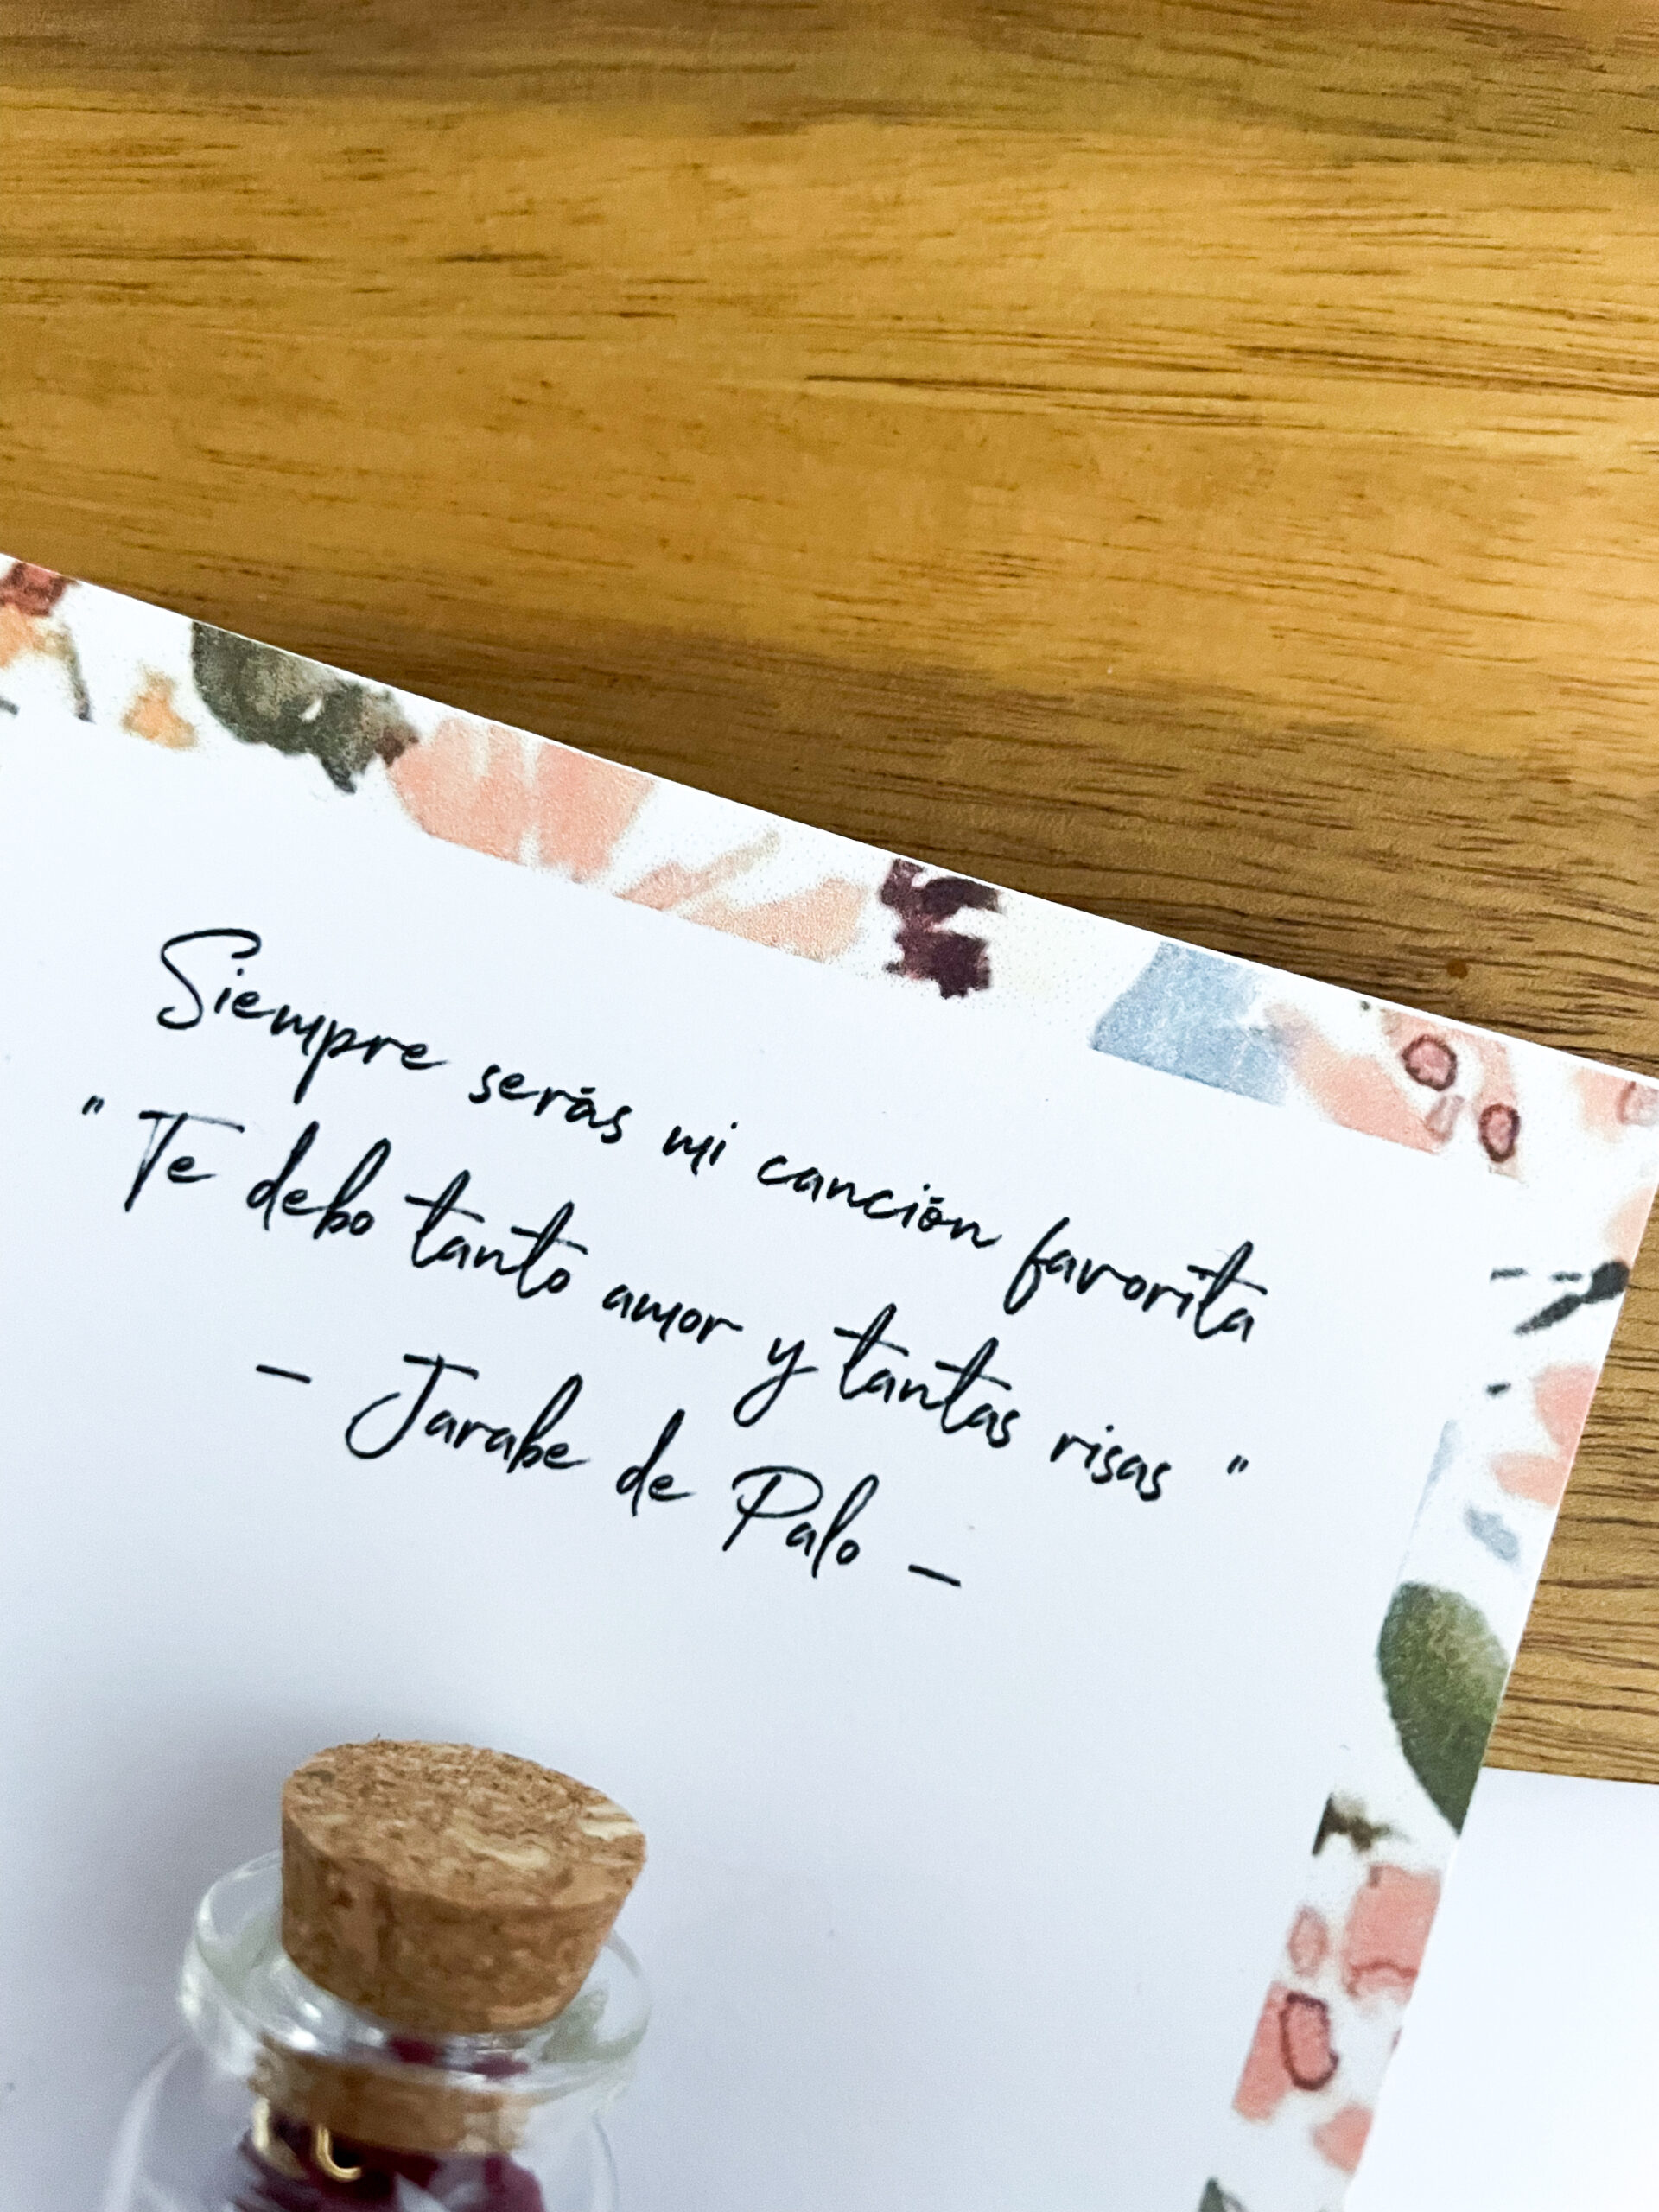 Siempre serás mi canción favorita
" Te debo tanto amor y tantas risas "
- Jarabe de Palo -